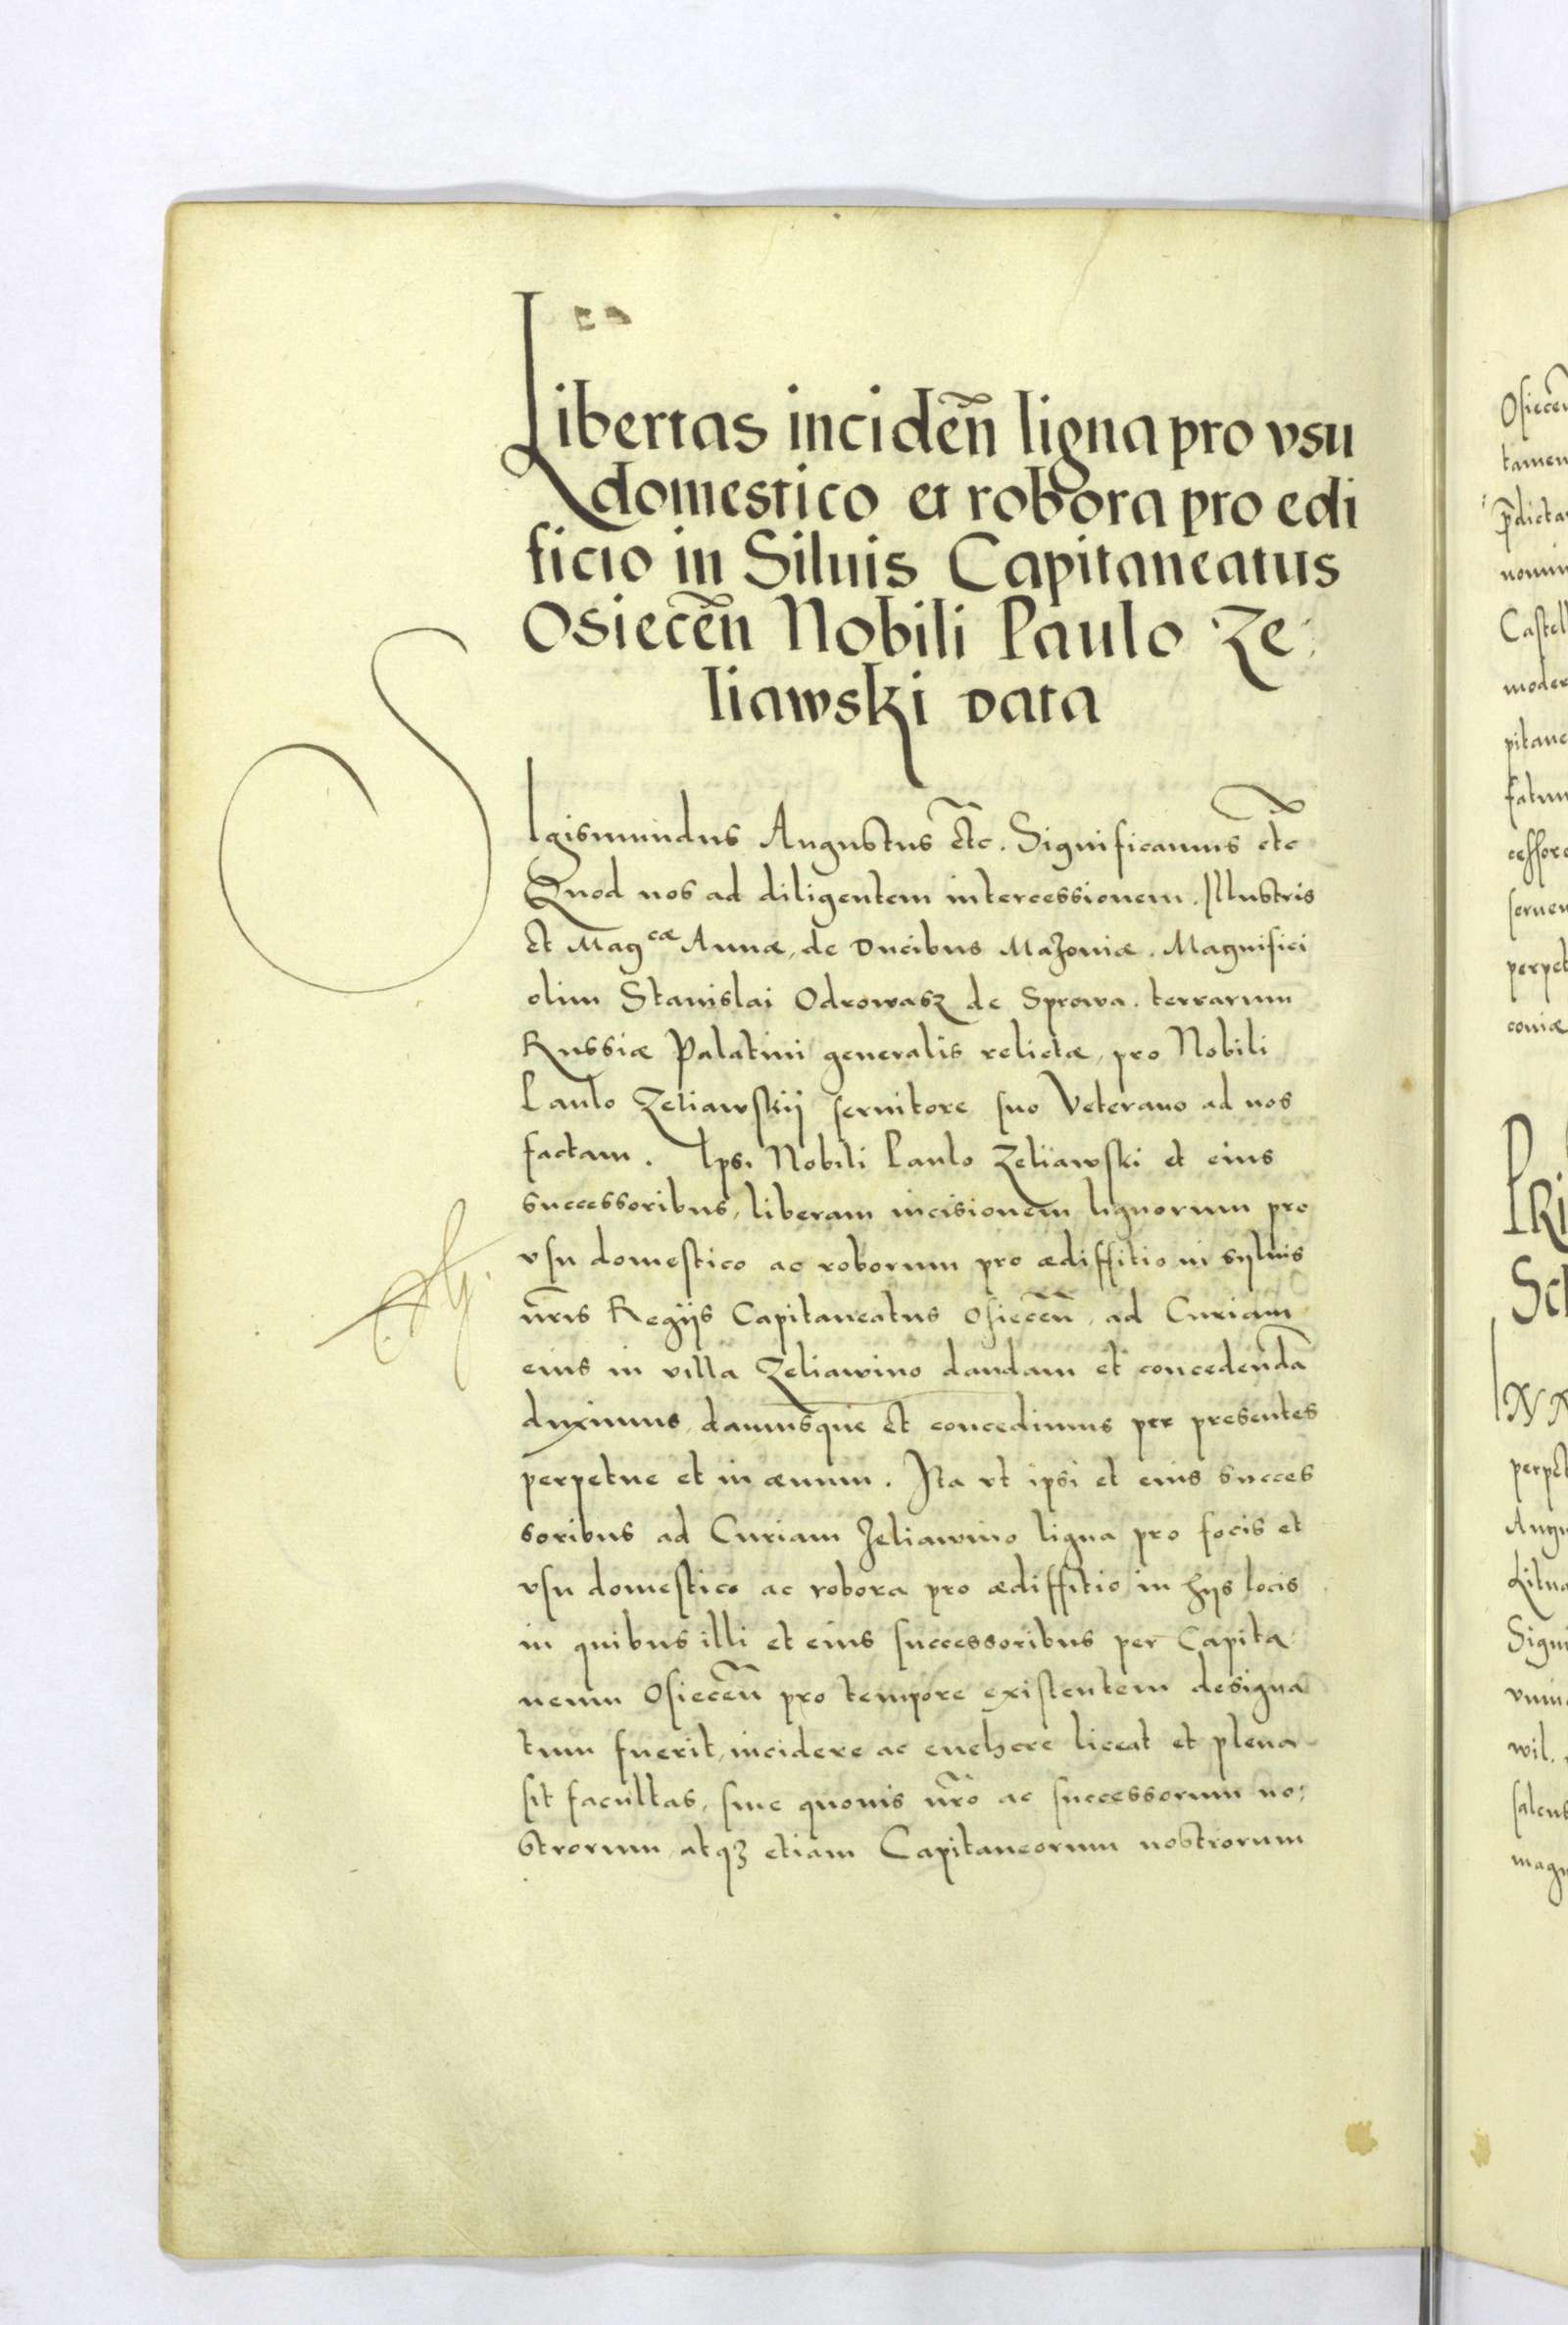 Libertas inciden̄ ligna pro vsu
domestico et robora pro edi
ficio in Siluis Capitaneatus
Osiecen̄ Nobili Paulo Ze:
liawski data
SIgismundus Augustus etc. Significamus etc
Quod nos ad diligentem intercessionem. Illustris
et Mag^cæ Annæ, de Ducibus Mazoniæ. Magnifici
olim Stanislai Odrowasz de Sprowa. terrarum
Russiæ Palatini generalis relictæ, pro Nobili
Paulo Zeliawskij seruitore suo Veterano ad nos
factam. Ipsi Nobili Paulo Zeliawski et eius
successoribus, liberam incisionem lignorum pro
vsu domestico ac roborum pro ædiffitio in syluis
nr̄is Regijs Capitaneatus Osiecen̄, ad Curiam
eius in villa Zeliawino dandam et concedendā
duximus, damusque et concedimus per presentes
perpetue et in æuum. Ita vt ipsi et eius succes
soribus ad Curiam Zeliawino ligna pro focis et
vsu domestico ac robora pro ædiffitio in hijs locis
in quibus illi et eius successoribus per Capita
neum Osiecen̄ pro tempore existentem designa
tum fuerit, incidere ac euehere liceat et plena
sit facultas, sine quouis nr̄o ac successorum no:
strorum atqꝫ etiam Capitaneorum nostrorum
Osiecen̄
tamen
p̄dicta
Castel
moder
pitane
fatum
cessore
seruen
perpet
coniæ
PRi
Sch
perpet
Augu
Litua
Signi
wil.
salcus
magn